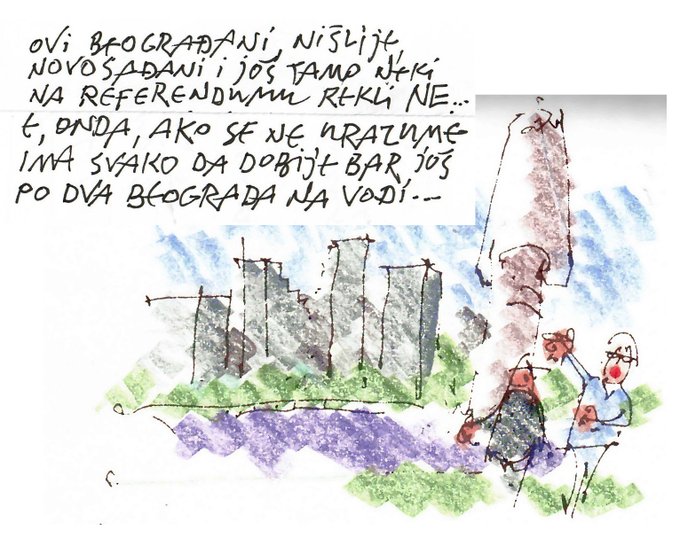 OVI BEOGRAĐANI, NIŠLIJE,
NOVOSAĐANI I JOŠ TAMO NEKI
NA REFERENDUMU REKLI NE...
E, ONDA, AKO SE NE URAZUME
IMA SVAKO DA DOBIJE BAR JOŠ
PO DVA BEOGRADA NA VODI...